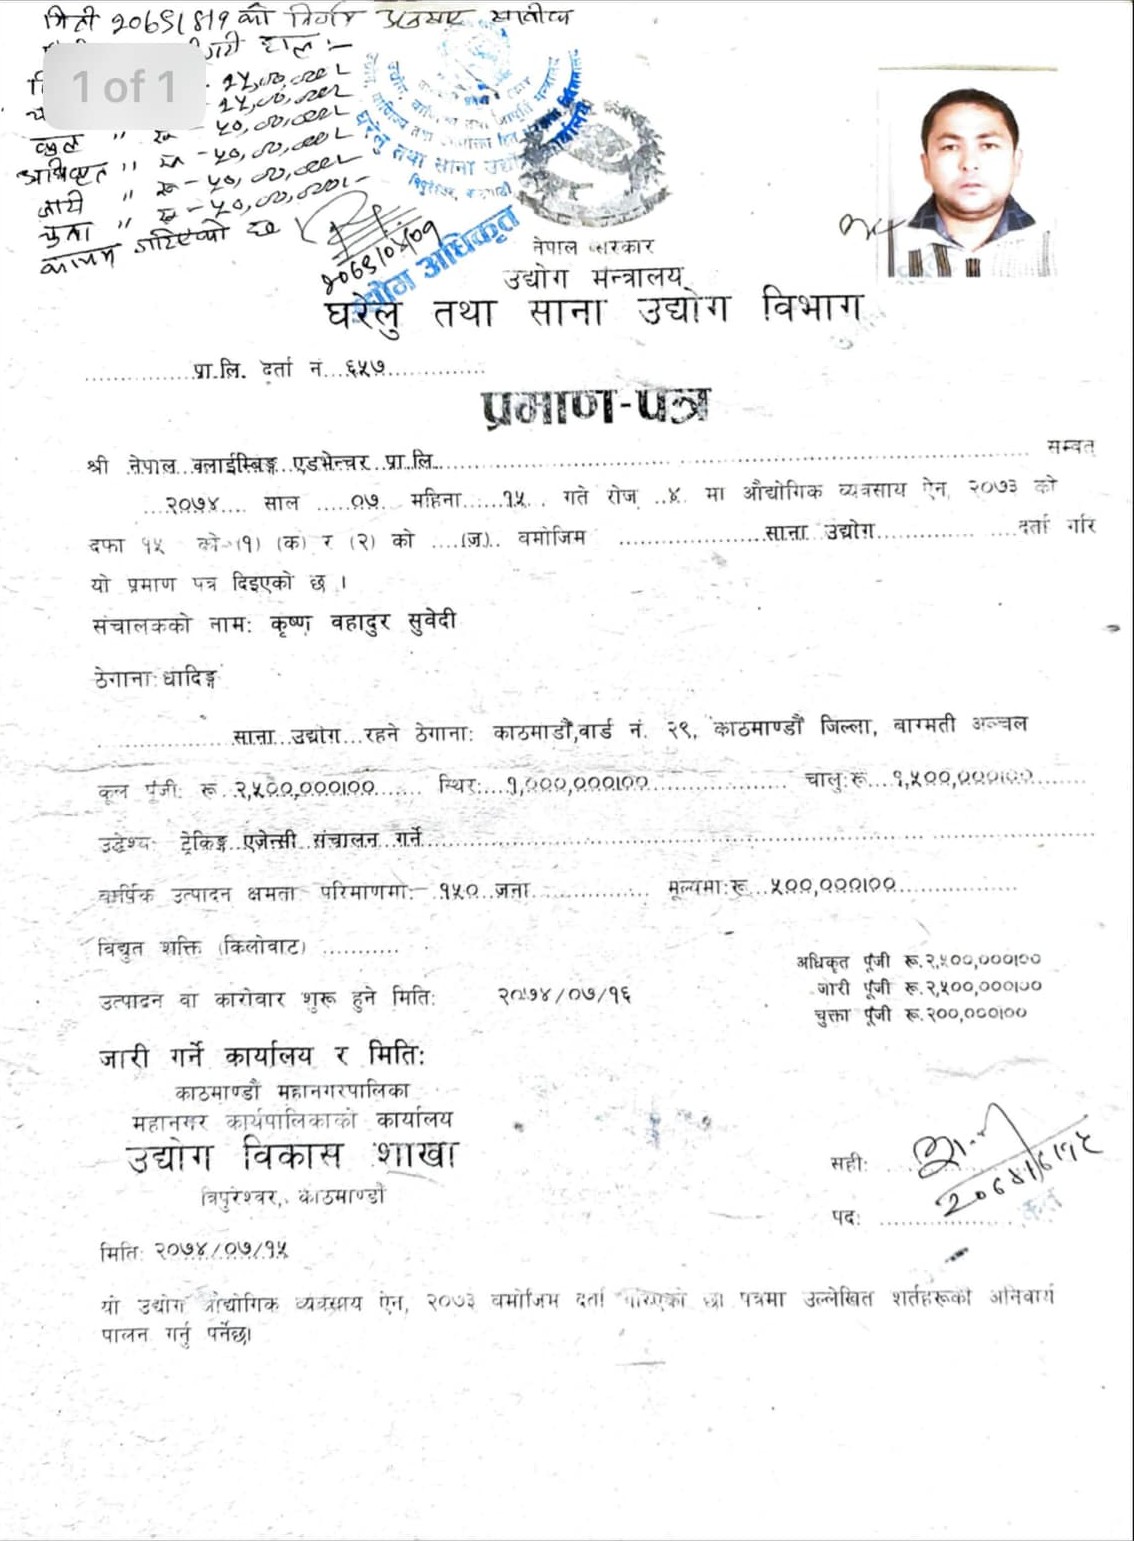 मिती २०७९/४/१ को निर्णय अनुसार साबीक
1 of 1
हाल :-
- १५,००,०००/-
कुल " रू - ५०,००,०००/-
अधिकृत " रू - ५०,००,०००/-
जारी " रू - ५०,००,०००/-
चुक्ता " रू - ५०,००,०००/-
कायम गरिएको छ
उद्योग अधिकृत
घरेलु तथा साना
त्रिपुरेश्वर, काठमाडौं
नेपाल सरकार
उद्योग मन्त्रालय
घरेलु तथा साना उद्योग विभाग
प्रा.लि. दर्ता नं...६५७
प्रमाण-पत्र
श्री नेपाल क्लाईम्बिङ्ग एडभेन्चर प्रा.लि. सम्वत्
२०७४ साल ०७ महिना १५ गते रोज ४ मा औद्योगिक व्यवसाय ऐन, २०७३ को
दफा १५ को (१) (क) र (२) को (ज) वमोजिम साना उद्योग दर्ता गरि
यो प्रमाण पत्र दिइएको छ ।
संचालकको नाम: कृष्ण वहादुर सुवेदी
ठेगाना: धादिङ्ग
साना उद्योग रहने ठेगाना: काठमाडौं,वार्ड नं. २९, काठमाण्डौं जिल्ला, बाग्मती अञ्चल
कूल पूंजी: रू २,५००,०००।०० स्थिर: १,०००,०००।०० चालु:रू १,५००,०००।००
उद्धेश्य- ट्रेकिङ्ग एजेन्सी संचालन गर्ने
वार्षिक उत्पादन क्षमता परिमाणमा:- १५० जना मूल्यमा:रू ५००,०००।००
विद्युत शक्ति (किलोवाट)
अधिकृत पूंजी रू.२,५००,०००।००
उत्पादन वा कारोवार शुरू हुने मिति: २०७४/०७/१६
जारी पूंजी रू.२,५००,०००।००
चुक्ता पूंजी रू.२००,०००।००
जारी गर्ने कार्यालय र मिति:
काठमाण्डौं महानगरपालिका
महानगर कार्यपालिकाको कार्यालय
उद्योग विकास शाखा
त्रिपुरेश्वर, काठमाण्डौं
सही:
पद:
मिति: २०७४/०७/१५
यो उद्योग औद्योगिक व्यवसाय ऐन, २०७३ वमोजिम दर्ता गरिएको छ। पत्रमा उल्लेखित शर्तहरूको अनिवार्य
पालन गर्नु पर्नेछ।